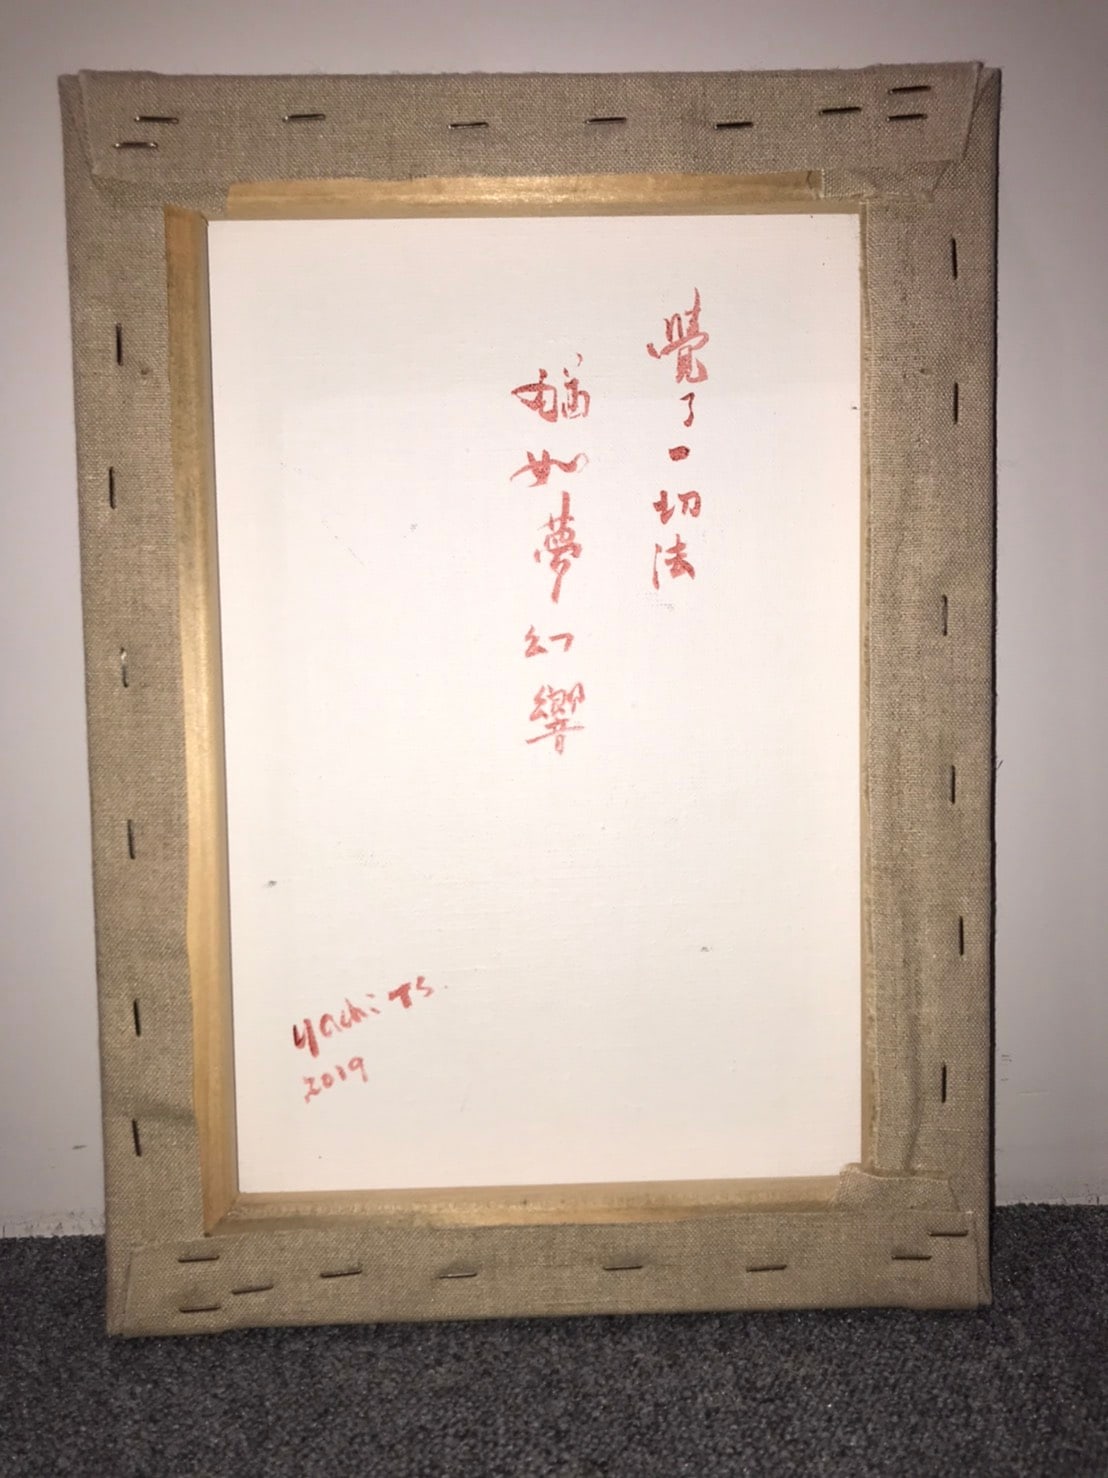 覺了一切法
猶如夢幻響
Yachi TS.
2019